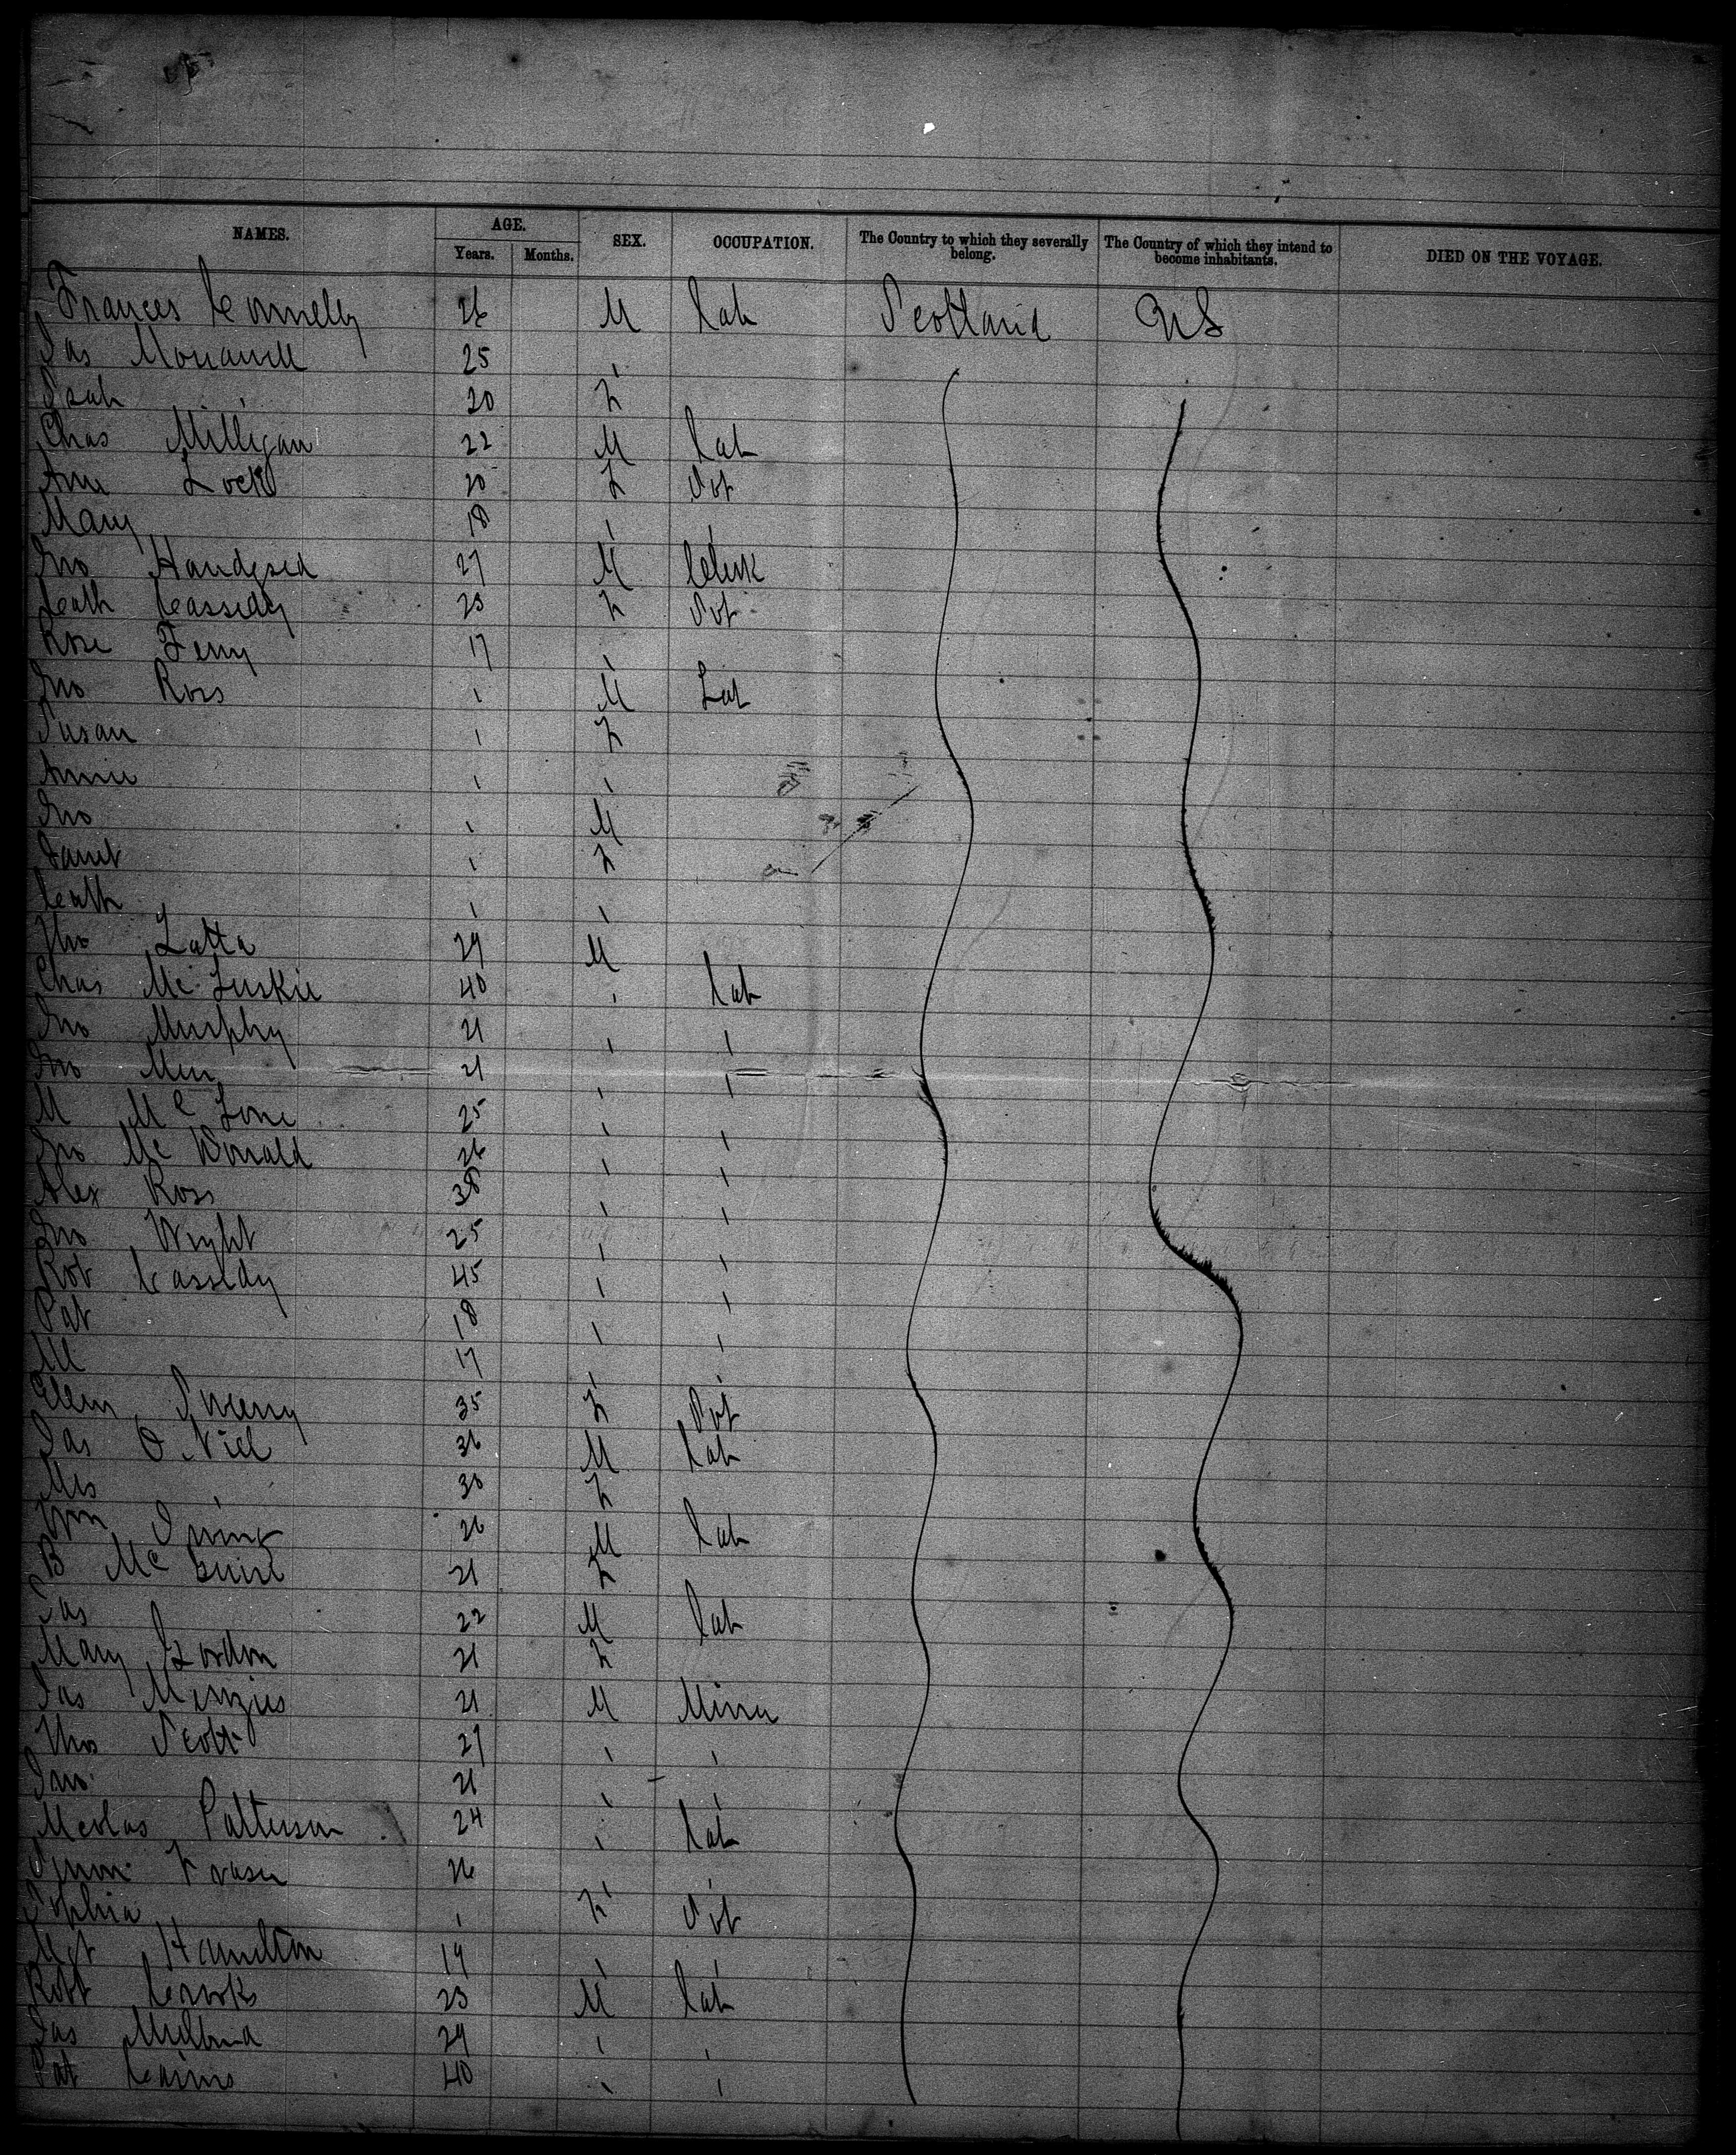 NAMES. AGE. SEX. OCCUPATION. The Country to which they severally belong. The Country of which they intend to become inhabitants. DIED ON THE VOYAGE.
Years. Months.
Frances Connelly 26 M Lab Scotland US
Jas 25 '
20 F
Chas Milligan 22 M Lab
Ann Lock 20 F Svt
Mary 18 ' '
Jno Handysid 27 M Clerk
Cath Cassidy 23 F Svt
Rose Ferry 17 '
Jno Ross ' M Lab
Susan ' F
Annie ' '
Jno ' M
Janet ' F
Cath ' '
Tho Latta 29 M
Chas Mc Luskie 40 ' Lab
Jno Murphy 21 ' '
Jno 21 ' '
M 25 ' '
Jno Mc Donald 26 ' '
Alex Ross 38 ' '
Jno Wright 25 ' '
Rob Cassidy 45 ' '
Pat 18 ' '
M 17 ' '
Ellen Sweeny 35 F Svt
Jas O Niel 36 M Lab
Mrs ' 30 F
Wm Irving 26 M Lab
B Mc Guire 21 F
Jas 22 M Lab
Mary Gordon 21 F
Jas Menzies 21 M Miner
Tho Scott 27 ' '
Jno 21 ' '
Patterson 24 ' Lab
Fraser 26 ' '
Sophia ' F Svt
Mgt Hamilton 19 ' '
Robt Crooks 23 M Lab
Jas 29 ' '
Pat Cairns 40 ' '